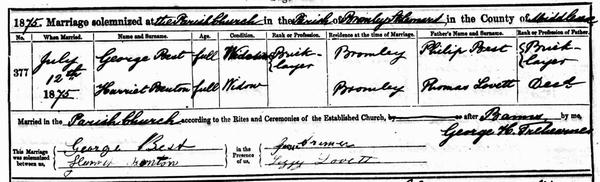 1875. Marriage solemnized at the Parish Church in the Parish of Bromley St Leonard in the County of Middlesex
No. When Married. Name and Surname. Age. Condition. Rank or Profession. Residence at the time of Marriage. Father's Name and Surname. Rank or Profession of Father.
377 July 12th 1875 George Best full Widower Bricklayer Bromley Philip Best Bricklayer
Harriet Benton full Widow Bromley Thomas Lovett Dead
Married in the Parish Church according to the Rites and Ceremonies of the Established Church, by or after Banns by me,
George H.
This Marriage was solemnized between us, George Best in the Presence of us,
Benton Lizzy Lovett